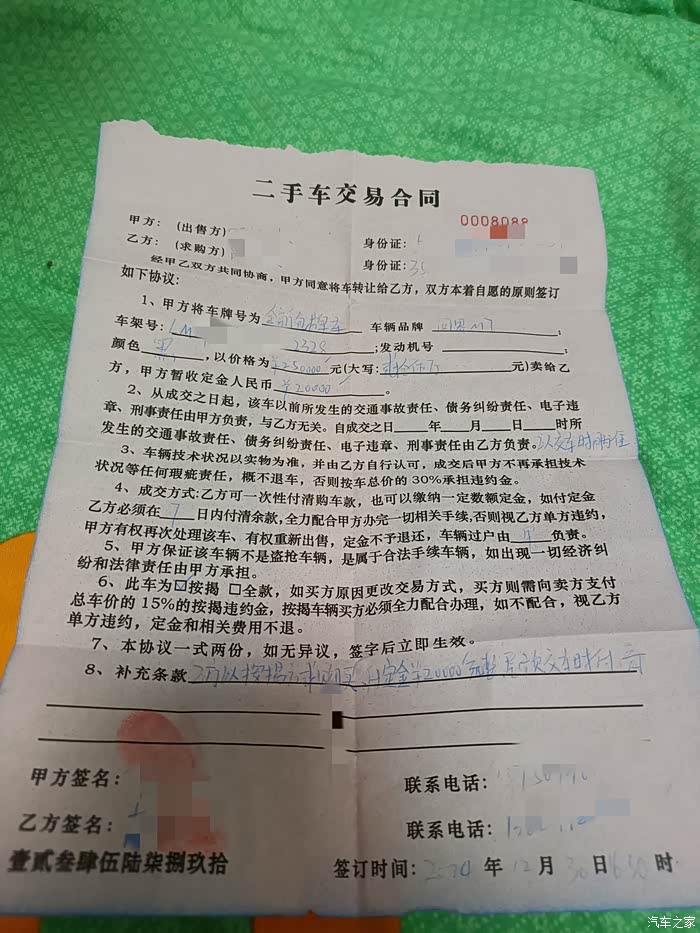 二手车交易合同
0008088
甲方：（出售方）
身份证：
乙方：（求购方）
身份证：35
经甲乙双方共同协商，甲方同意将车转让给乙方，双方本着自愿的原则签订
如下协议：
1、甲方将车牌号为 车辆品牌 问界M7；
车架号：LM 2328；发动机号；
颜色 黑，以价格为 ¥250000 元（大写： 元）卖给乙
方，甲方暂收定金人民币 ¥20000。
2、从成交之日起，该车以前所发生的交通事故责任、债务纠纷责任、电子违
章、刑事责任由甲方负责，与乙方无关。自成交之日 年 月 日 时所
发生的交通事故责任、债务纠纷责任、电子违章、刑事责任由乙方负责。以交车时为准
3、车辆技术状况以实物为准，并由乙方自行认可，成交后甲方不再承担技术
状况等任何瑕疵责任，概不退车，否则按车总价的30%承担违约金。
4、成交方式：乙方可一次性付清购车款，也可以缴纳一定数额定金，如付定金
乙方必须在 7 日内付清余款，全力配合甲方办完一切相关手续，否则视乙方单方违约，
甲方有权再次处理该车、有权重新出售，定金不予退还，车辆过户由 负责。
5、甲方保证该车辆不是盗抢车辆，是属于合法手续车辆，如出现一切经济纠
纷和法律责任由甲方承担。
6、此车为☑按揭 □全款，如买方原因更改交易方式，买方则需向卖方支付
总车价的15%的按揭违约金，按揭车辆买方必须全力配合办理，如不配合，视乙方
单方违约，定金和相关费用不退。
7、本协议一式两份，如无异议，签字后立即生效。
8、补充条款 乙方以按揭 购买 定金¥20000 交车时付
甲方签名：
联系电话：
乙方签名：
联系电话：
壹贰叁肆伍陆柒捌玖拾
签订时间：2024 年 12 月 30 日 时
汽车之家